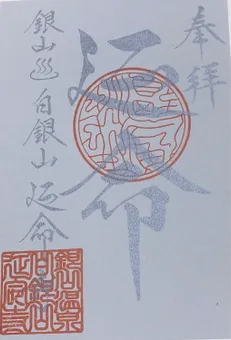 奉拝
延命
銀山♨白銀山延命
銀山温泉
白銀山
延命寺